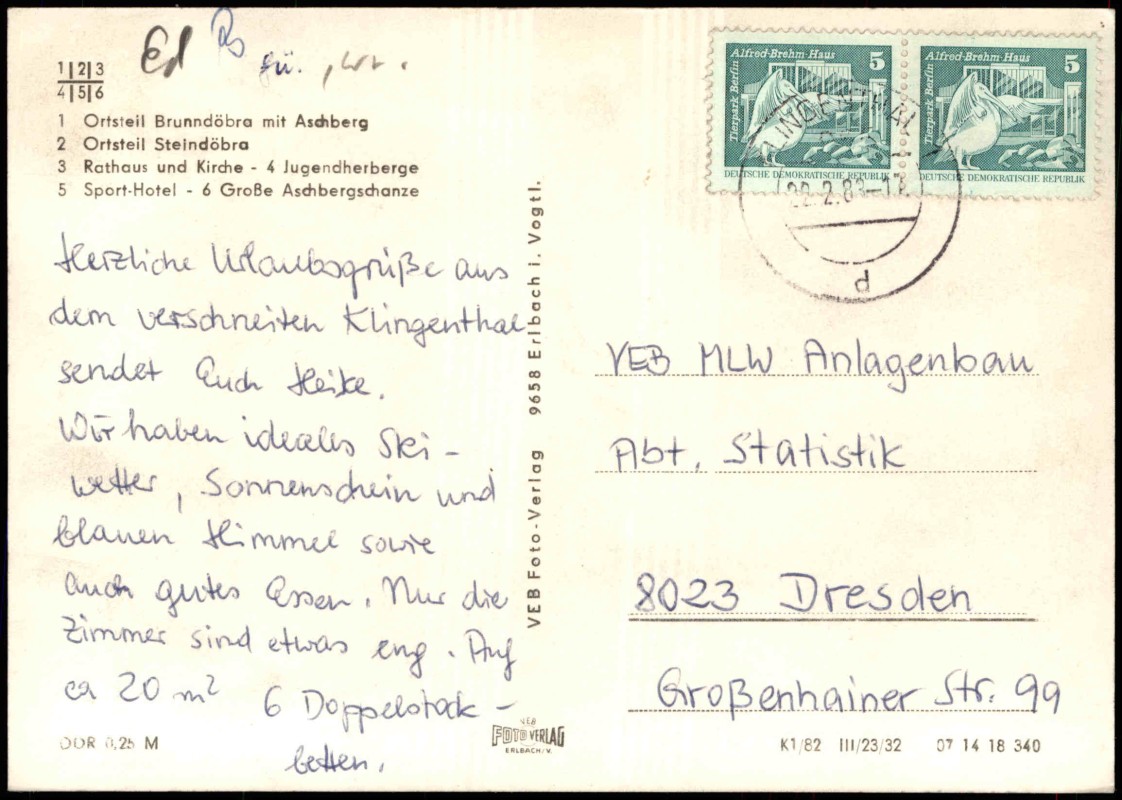 1|2|3
4|5|6
1 Ortsteil Brunndöbra mit Aschberg
2 Ortsteil Steindöbra
3 Rathaus und Kirche - 4 Jugendherberge
5 Sport-Hotel - 6 Große Aschbergschanze
Herzliche Urlaubsgrüße aus
dem verschneiten Klingenthal
sendet Euch Heike.
Wir haben ideales Ski-
wetter, Sonnenschein und
blauen Himmel sowie
auch gutes Essen. Nur die
Zimmer sind etwas eng. Auf
ca 20 m² 6 Doppelstock-
betten.
DDR 0,25 M
VEB Foto-Verlag 9658 Erlbach i. Vogtl.
VEB
FOTO VERLAG
ERLBACH/V.
Tierpark Berlin
Alfred-Brehm-Haus 5
DEUTSCHE DEMOKRATISCHE REPUBLIK
Tierpark Berlin
Alfred-Brehm-Haus 5
DEUTSCHE DEMOKRATISCHE REPUBLIK
d
VEB MLW Anlagenbau
Abt. Statistik
8023 Dresden
Großenhainer Str. 99
K1/82 III/23/32 07 14 18 340